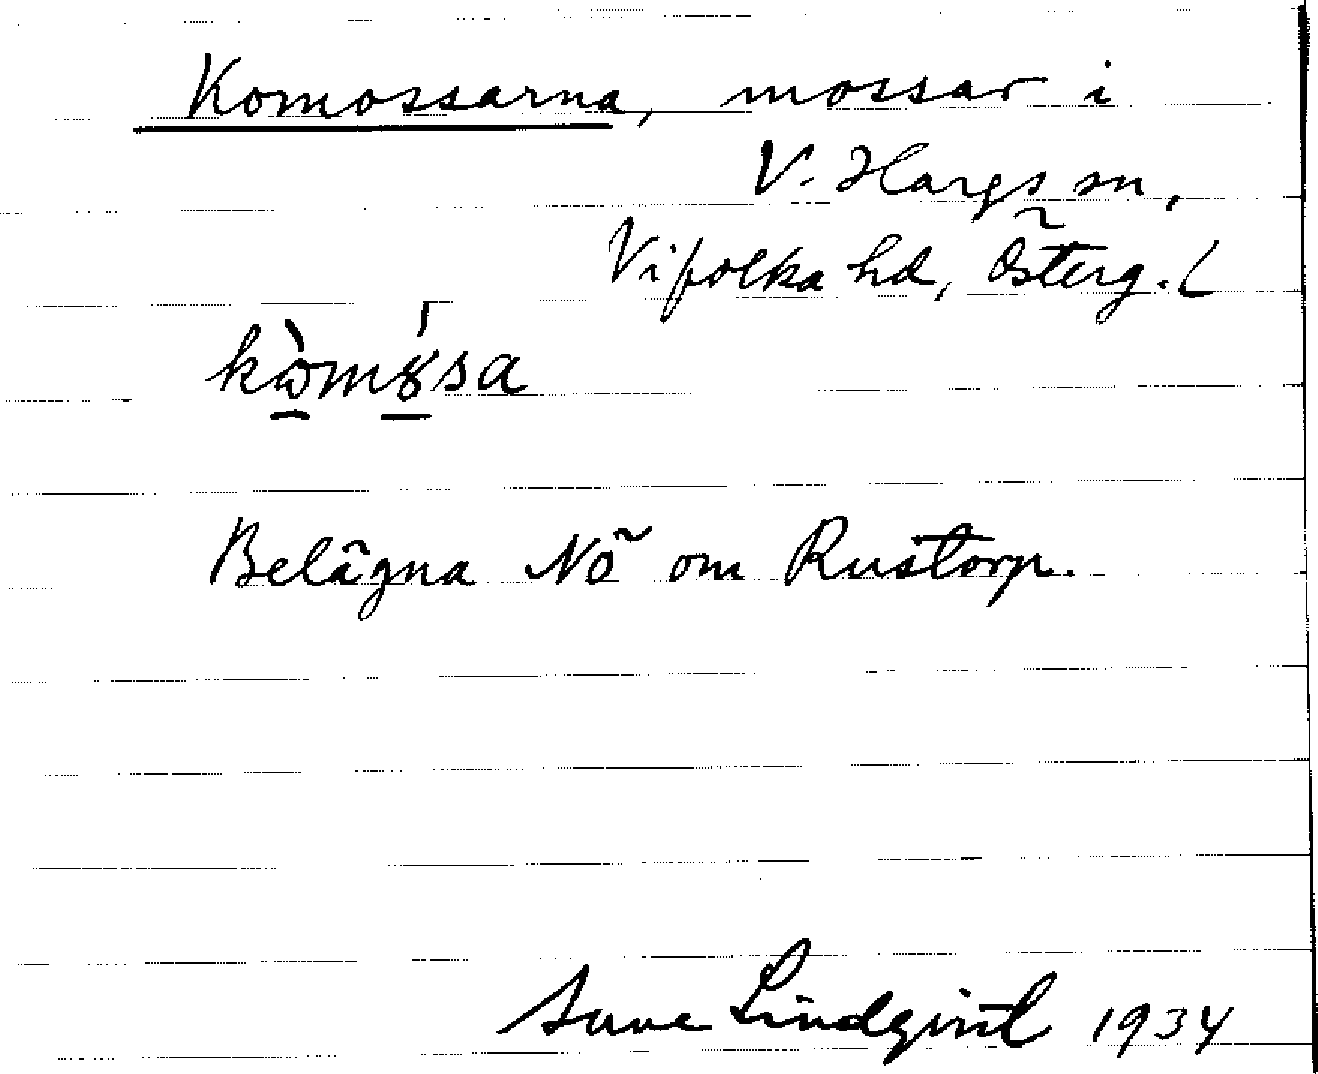 Komossarna, mossar i
V. Hargs sn,
Vifolka hd, Österg. L
Belägna NÖ om Rustorp.
Sune Lindqvist 1934